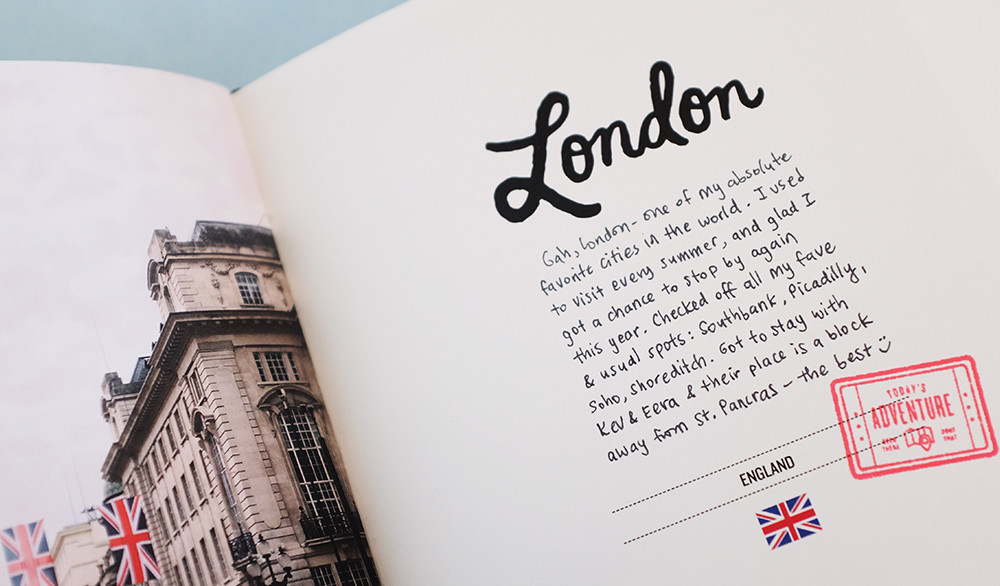 London
Gah, London - one of my absolute
favorite cities in the world. I used
to visit every summer, and glad I
got a chance to stop by again
this year. Checked off all my fave
& usual spots: Southbank, Picadilly,
Soho, shoreditch. Got to stay with
Kev & Eera & their place is a block
away from St. Pancras - the best
TODAY'S
ADVENTURE
BEEN THERE
DONE THAT
ENGLAND